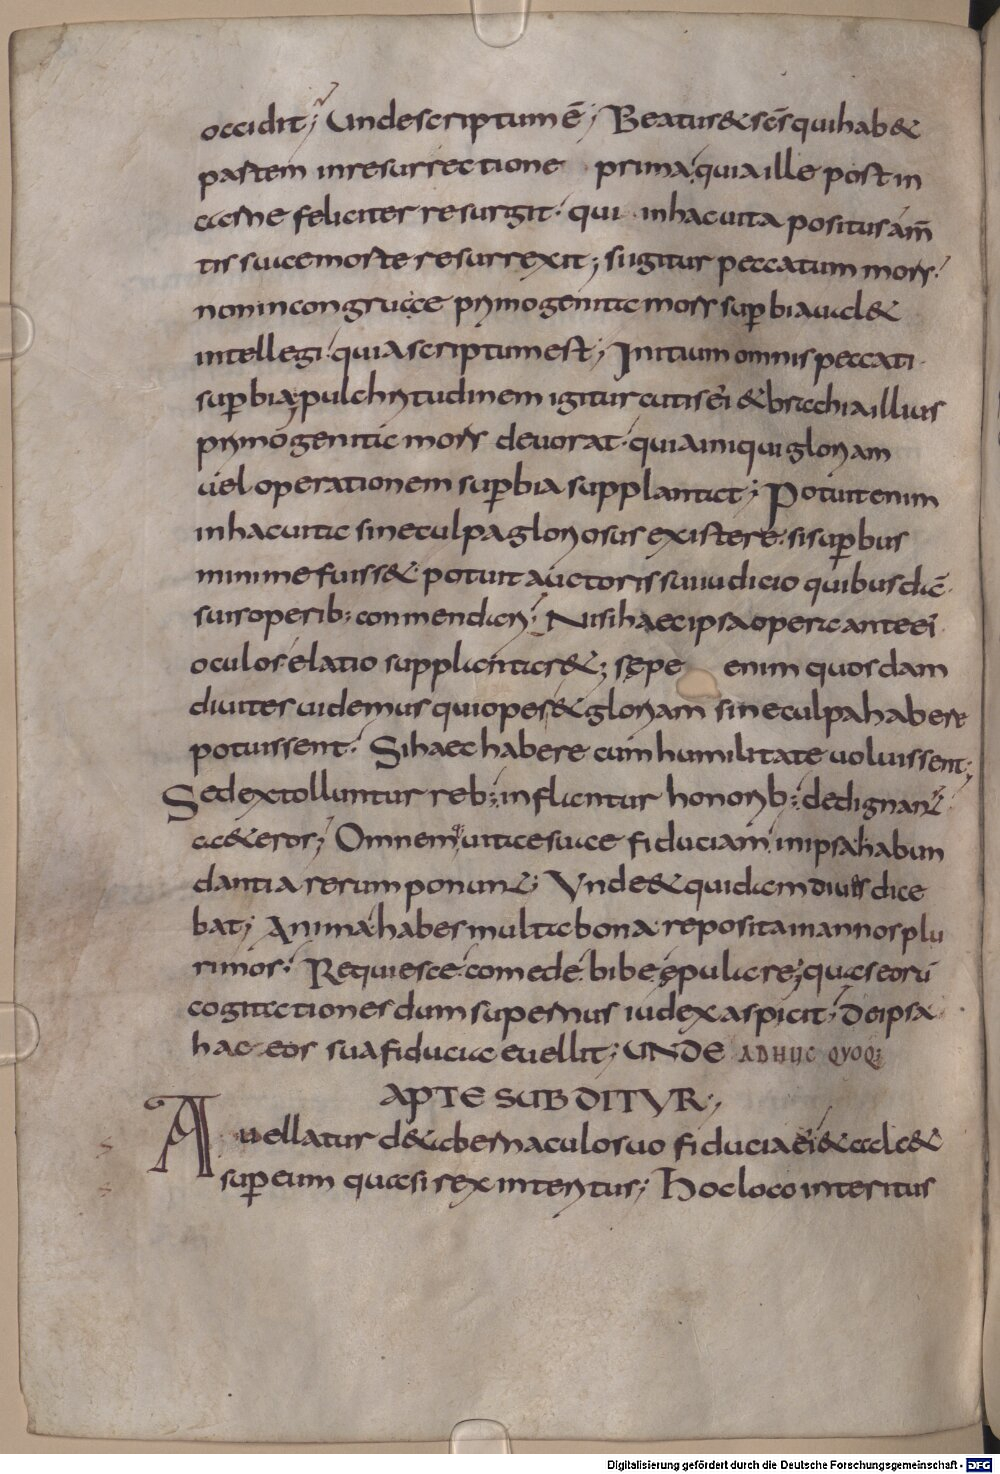 occidit; Unde scriptum ē; Beatus & sc̄s qui hab&
partem in resurrectione prima. quia ille post in
carne feliciter resurgit. qui in hac uita positus a m̄
tis suae morte resurrexit; sugitur peccatum mors.
non incongruae primogenita mors superbia ual&
intellegi. quia scriptum est; Initium omnis peccati
suꝑbia; pulchritudinem igitur cutis ei & brachia illius
primogenita mors deuorat. quia iniqui gloriam
uel operationem suꝑbia supplantat; Potuit enim
in hac uita sine culpa gloriosus existere. si suꝑbus
minime fuiss& potuit auctoris sui iudicio quibusdā
suis operib; commendari. Nisi haec ipsa opera ante ei
oculos elatio supplantass&; sępe enim quosdam
diuites uidemus qui opes & gloriam sine culpa habere
potuissent. Si haec habere cum humilitate uoluissent;
Sed extolluntur reb; inflantur honorib; dedignant̄
a c&eros; Omnemq; uitae suae fiduciam in ipsa habun
dantia rerum ponunt; Unde & quidam diues dice
bat; Anima habes multa bona reposita in annos plu
rimos. Requiesce. comede. bibe. epulare; quas eorū
cogitationes dum supernus iudex aspicit. De ipsa
hac eos sua fiducia euellit; UNDE ADHUC QUOQ;
APTE SUBDITUR;
Auellatur de tabernaculo suo fiducia ei & calc&
suꝑ eum quasi rex interitus; Hoc loco interitus
Digitalisierung gefördert durch die Deutsche Forschungsgemeinschaft - DFG